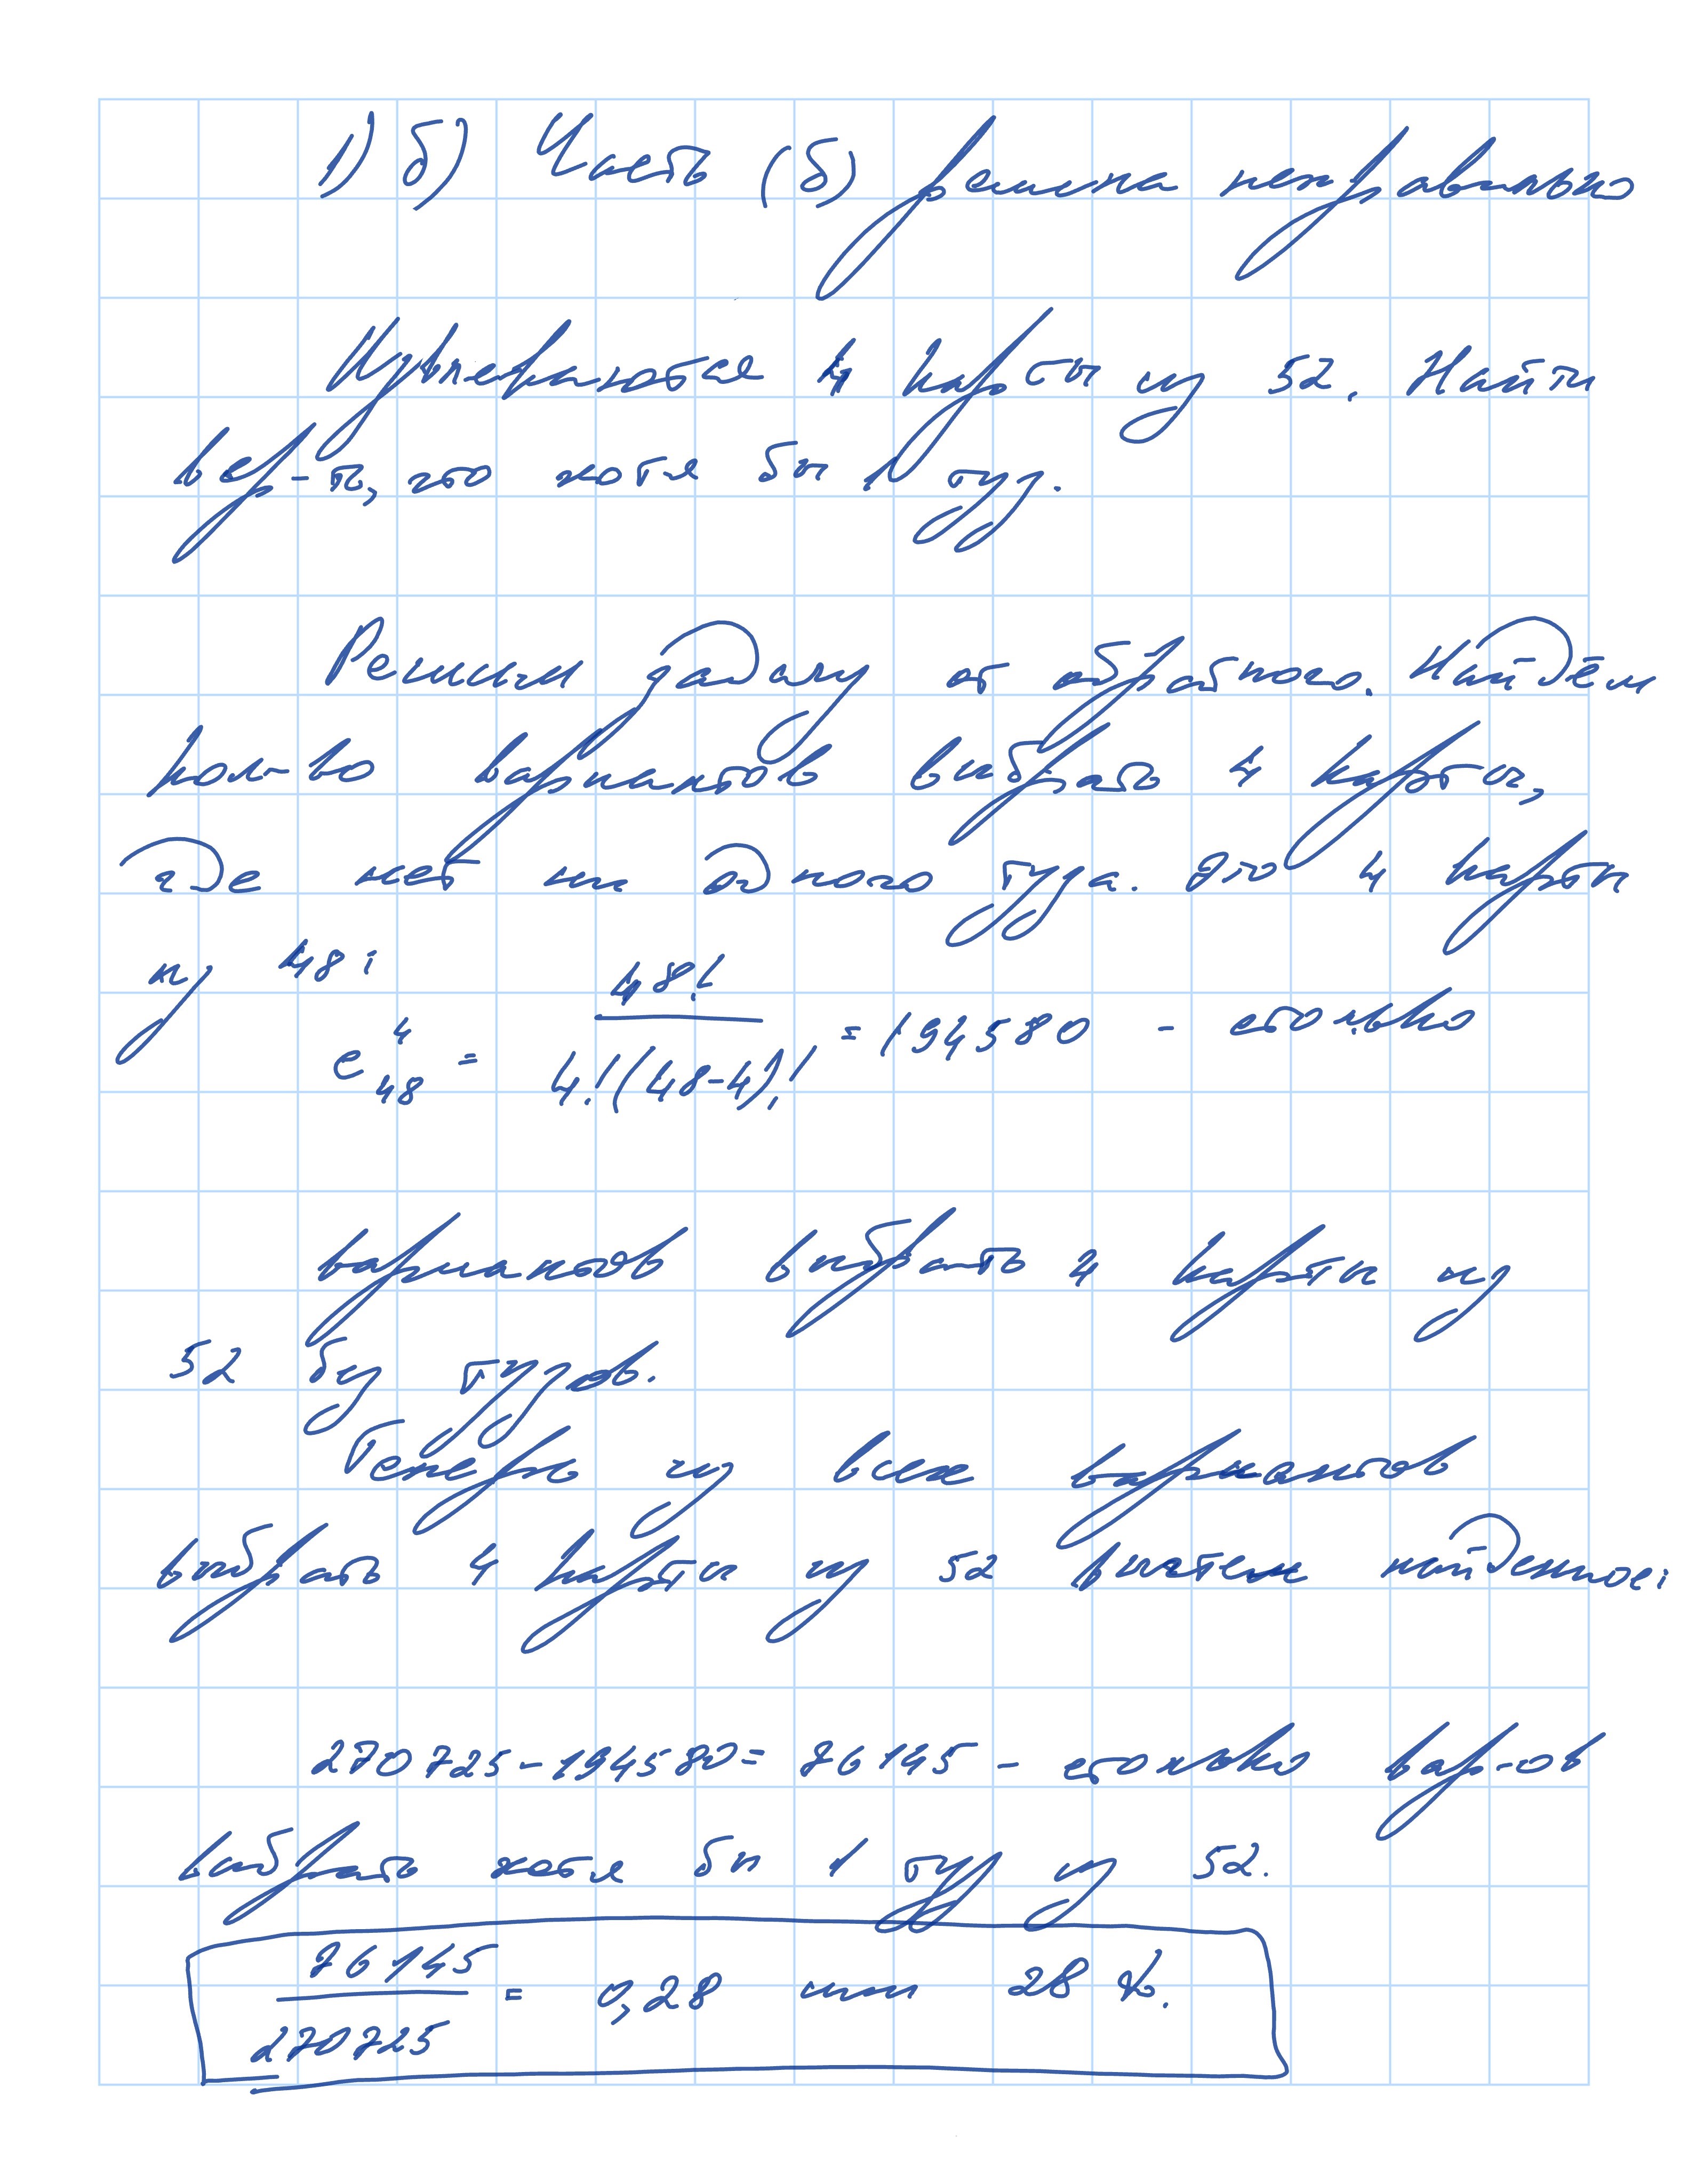 1) б) Часть (б) решена неправильно
Извлекаются 4 карты из 52. Найти
вер-ть, что хотя бы 1 туз.
Решим задачу от обратного. Найдём
кол-во вариантов выбрать 4 карты,
где нет ни одного туза. Это 4 карты
из 48:
C₄₈⁴ = 48! / 4!(48-4)! = 194580 - столько
вариантов выбрать 4 карты из
52 без тузов.
Теперь из всех вариантов
выбрать 4 карты из 52 вычтем найденное:
270725-194580= 76145 - столько вар-ов
выбрать хотя бы 1 туз из 52.
76145 / 270725 = 0,28 или 28 %.